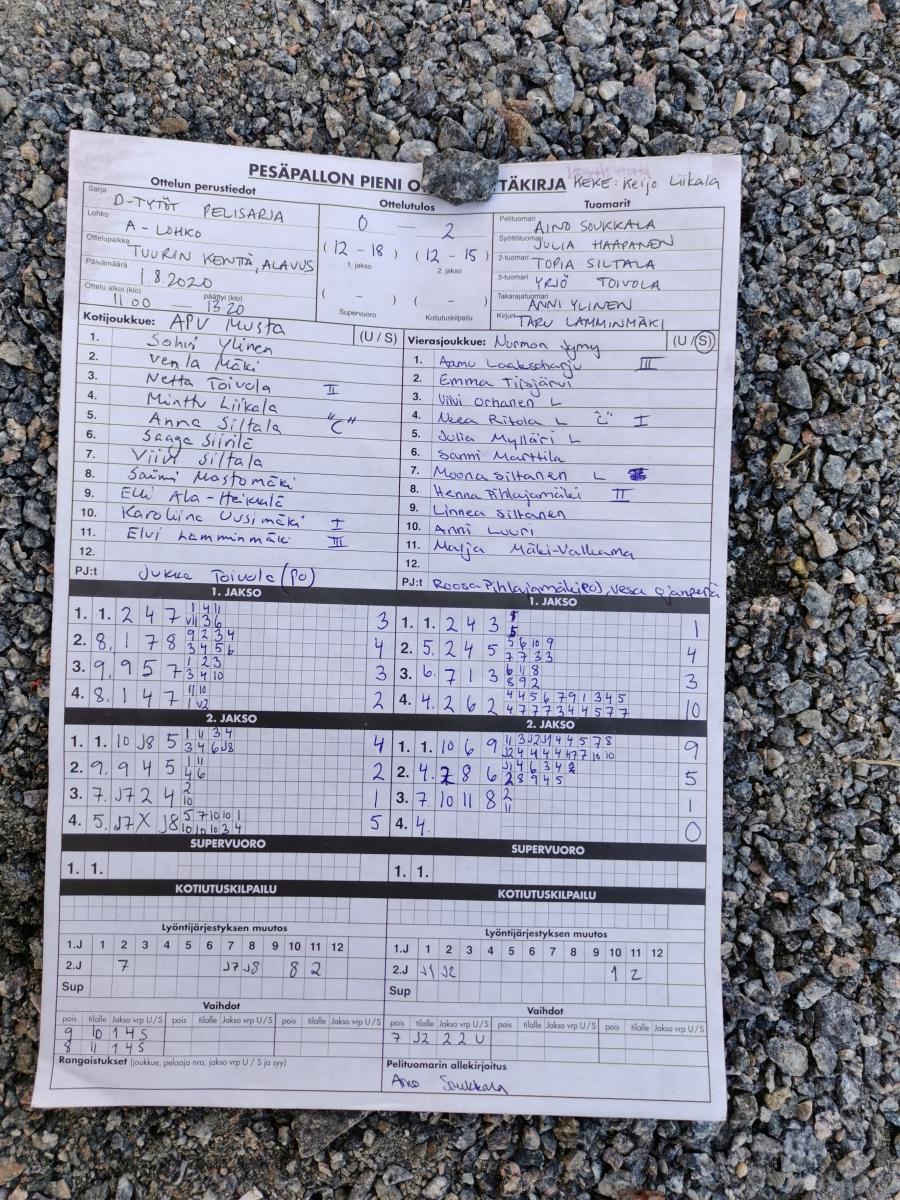 PESÄPALLON PIENI O TÄKIRJA KEKE: Keijo Liikala
Ottelun perustiedot
Sarja D-TYTÖT PELISARJA
Lohko A-LOHKO
Ottelupaikka TUURIN KENTÄ, ALAVUS
Päivämäärä 1.8.2020
Ottelu alkoi (klo) 11.00 — päättyi (klo) 13.20
Ottelutulos
0 — 2
(12 - 18) (12 - 15)
1. jakso 2. jakso
( - ) ( - )
Supervuoro Kotiutuskilpailu
Tuomarit
Pelituomari AINO SOUKKALA
Syöttötuomari JULIA HAAPANEN
2-tuomari TOPIA SILTALA
3-tuomari YRJÖ TOIVOLA
Takarajatuomari ANNI YLINEN
Kirjuri TARU LAMMINMÄKI
Kotijoukkue: APV Musta (U / S)
1. Sohvi Ylinen
2. Venla Mäki
3. Netta Toivola II
4. Minttu Liikala
5. Anna Siltala "C"
6. Saaga Siirilä
7. Viivi Siltala
8. Saimi Mastomäki
9. Elli Ala-Heikkilä
10. Karoliina Uusimäki I
11. Elvi Lamminmäki III
12.
PJ:t Jukka Toivola (PO)
Vierasjoukkue: Nurmon Jymy (U / S)
1. Aamu Laaksoharju III
2. Emma Tipijärvi
3. Viivi Orhanen L
4. Neea Ritola L "C" I
5. Julia Mylläri L
6. Sanni Marttila
7. Moona Siltanen L
8. Henna Pihlajamäki II
9. Linnea Siltanen
10. Anni Luuri
11. Maija Mäki-Valkama
12.
PJ:t Roosa Pihlajamäki(PO), Vesa Ojanperä
1. JAKSO
1. 1. 2 4 7 1 4 11 3
VII 3 6
2. 8. 1 7 8 9 2 3 4 4
3 4 5 6
3. 9. 9 5 7 1 2 3 3
3 4 10
4. 8. 1 4 7 11 10 2
1 V2
1. JAKSO
1. 1. 2 4 3 1
5
2. 5. 2 4 5 5 6 10 9 4
7 7 3 3
3. 6. 7 1 3 6 1 8 3
8 9 2
4. 4. 2 6 2 4 4 5 6 7 9 1 3 4 5 10
4 7 7 7 3 4 4 5 7 7
2. JAKSO
1. 1. 10 J8 5 1 1 3 4 4
3 4 6 J8
2. 9. 9 4 5 1 1 2
4 6
3. 7. J7 2 4 2 1
10
4. 5. J7 X J8 5 7 10 10 1 5
10 10 10 3 4
2. JAKSO
1. 1. 10 6 9 11 3 J2 J1 4 4 5 7 8 9
J2 4 4 4 4 7 7 10 10
2. 4. 2 8 6 J1 4 6 3 4 2 5
2 8 9 4 5
3. 7. 10 11 8 2 1
11
4. 4. 0
SUPERVUORO
1. 1.
SUPERVUORO
1. 1.
KOTIUTUSKILPAILU
KOTIUTUSKILPAILU
Lyöntijärjestyksen muutos
1.J 1 2 3 4 5 6 7 8 9 10 11 12
2.J 7 J7 J8 8 2
Sup
Lyöntijärjestyksen muutos
1.J 1 2 3 4 5 6 7 8 9 10 11 12
2.J J1 J2 1 2
Sup
Vaihdot
pois tilalle Jakso vrp U / S pois tilalle Jakso vrp U / S pois tilalle Jakso vrp U / S
9 10 1 4 S
8 11 1 4 S
Vaihdot
pois tilalle Jakso vrp U / S pois tilalle Jakso vrp U / S pois tilalle Jakso vrp U / S
7 J2 2 2 U
Rangaistukset (joukkue, pelaaja nro, jakso vrp U / S ja syy)
Pelituomarin allekirjoitus
Aino Soukkala